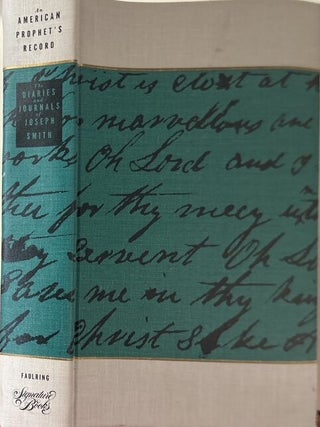 An
AMERICAN
PROPHET'S
RECORD
The
DIARIES
and
JOURNALS
of
JOSEPH
SMITH
FAULRING
Signature
Books
Christ is
at
marvellous and
works Oh Lord and
for thy mercy
thy Servent Oh
me in thy
for Christ Sake